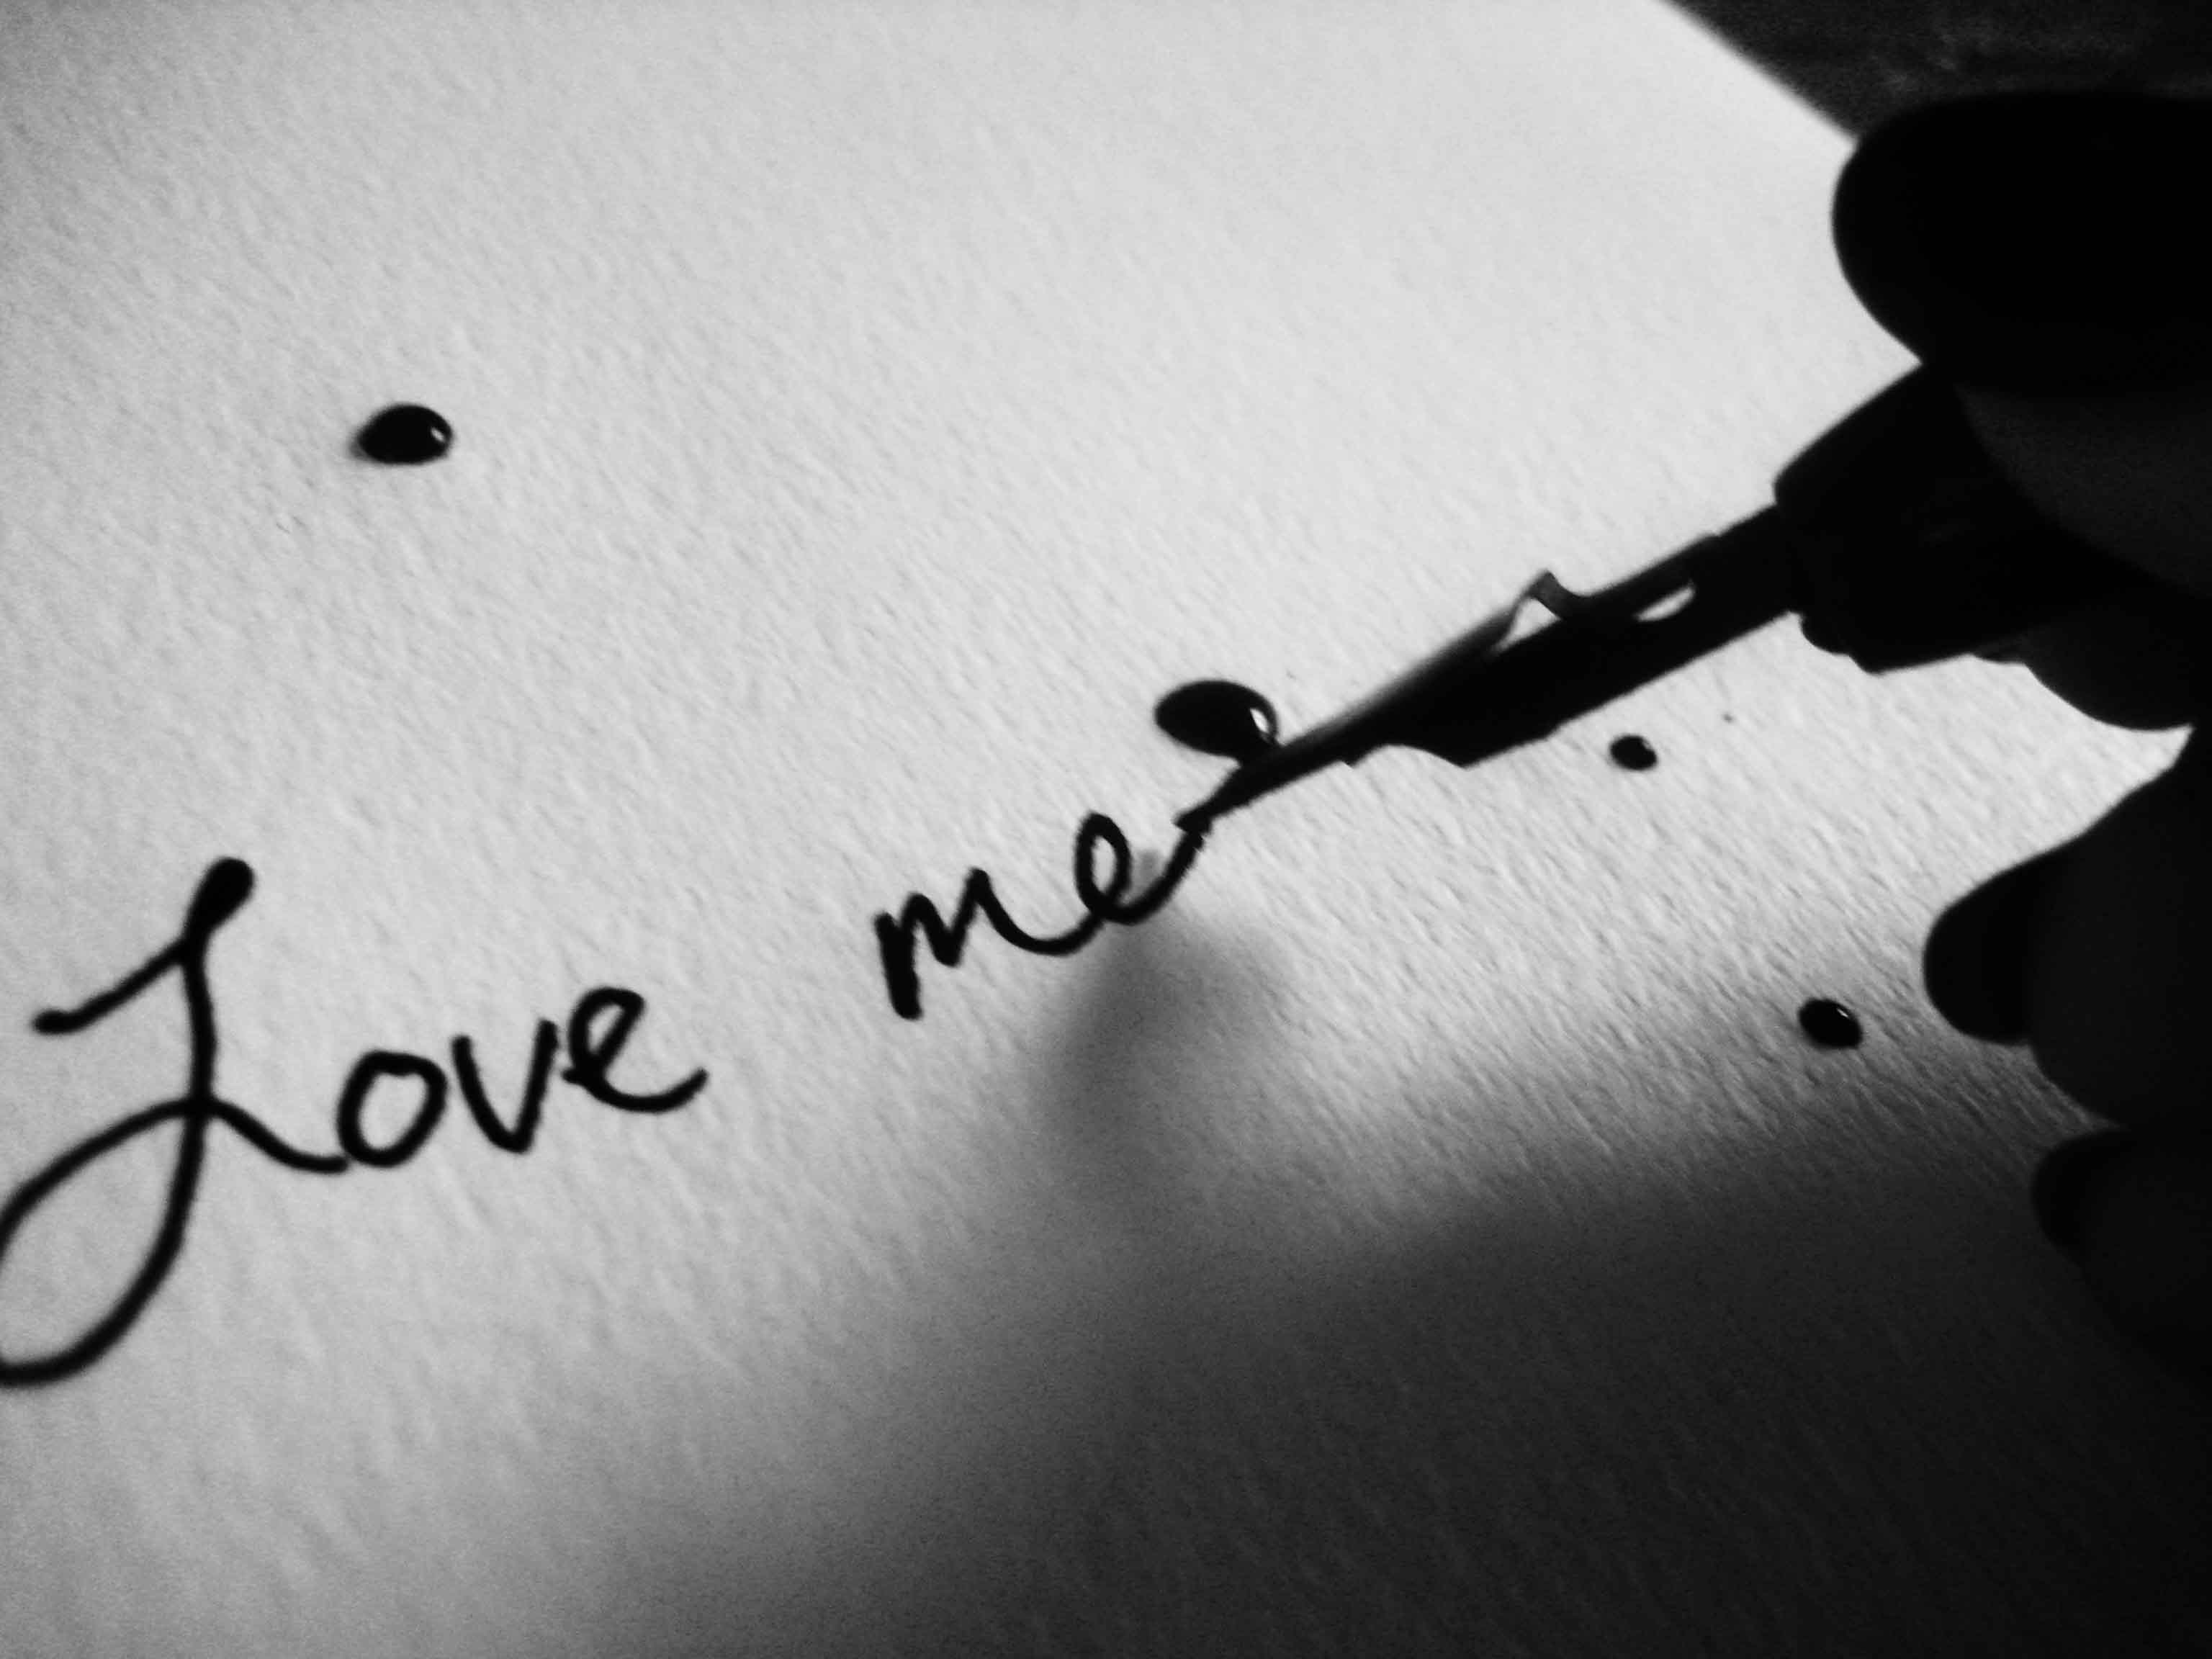 Love me